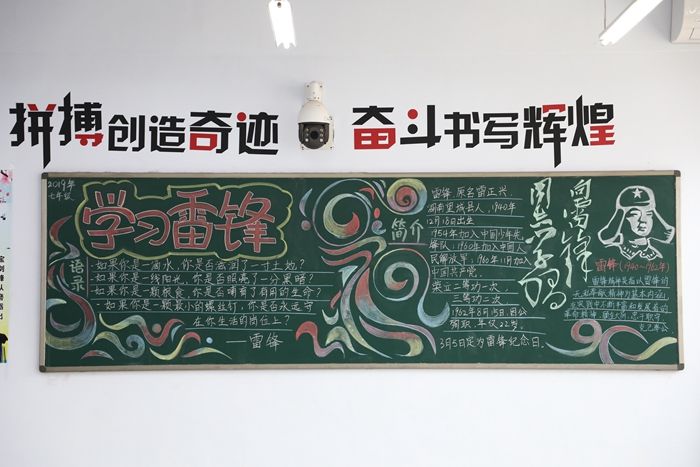 拼搏创造奇迹 奋斗书写辉煌
2019年
七年级
学习雷锋
语录
·如果你是一滴水,你是否滋润了一寸土地?
·如果你是一线阳光,你是否照亮了一分黑暗?
·如果你是一颗粮食,你是否哺育了有用的生命?
·如果你是一颗最小的螺丝钉,你是否永远守
在你生活的岗位上?
——雷锋
简介
雷锋 原名雷正兴,
湖南望城县人,1940年
12月18日出生
1954年加入中国少年先
锋队,1960年加入中国人
民解放军。1960年11月加入
中国共产党。
荣立二等功一次
三等功二次
1962年8月15日,因公
殉职,年仅22岁。
3月5日定为雷锋纪念日。
向雷锋
同志学习
雷锋(1940~1962年)
雷锋精神是指以雷锋的
无私奉献精神为基本内涵,